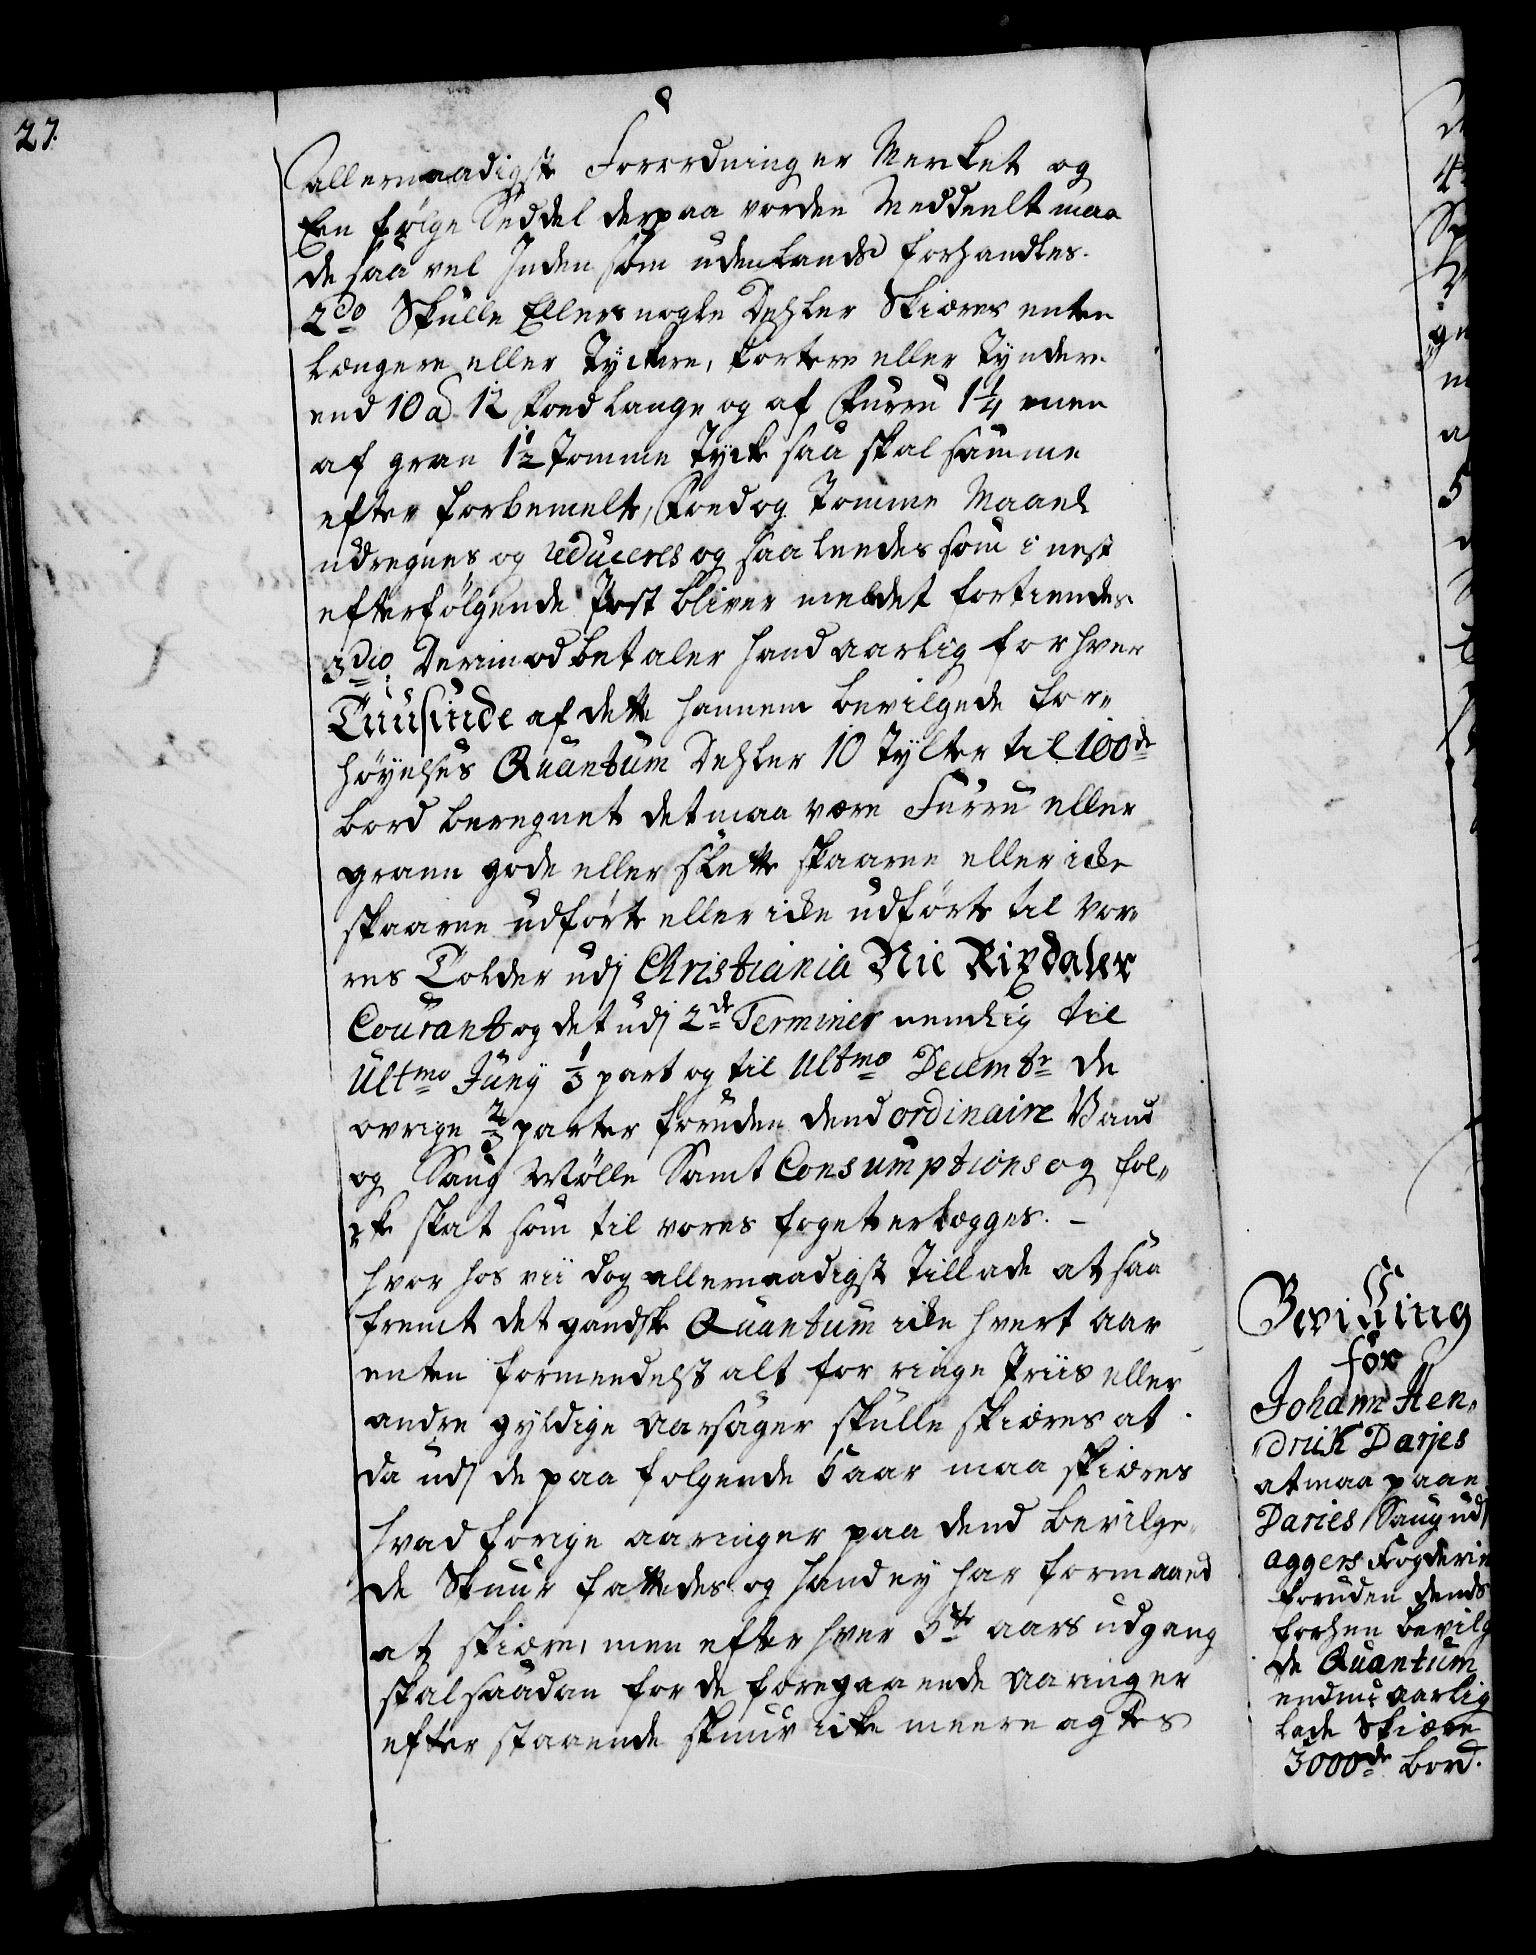 27.
allernaadigste Forordninger Merket og
Een følge Seddel derpaa vorden Meddeelt maa
de saa vel Inden som udenlands forhandles.
2do Skulle Ellers nogle Dehler Skiæres enten
længere eller Tyckere, kortere eller Tyndere
end 10 a 12 foed lange og af Furru 1¼ men
af gran 1½ Tomme Tyck saa skal samme
efter forbemelte, Foed og Tomme Maael
udregnes og reduceres og saaleedes som i nest
efterfølgende Post bliver meldet fortiendes
3die: Derimod betaler hand aarlig for hver
Tuusinde af dette hannem bevilgede for-
høyelses Quantum Dehler 10 Tylter til 100de
bord beregnet det maa være Furru eller
grann gode eller slette skaarne eller icke
skaarne udførte eller icke udførte til vor-
res Tolder udj Christiania Nie Rixdaler
Courant og det udj 2de Terminer nemlig til
Ultmo Juny ⅓ part og til Ultmo Decembr de
øvrige ⅔ parter foruden dend ordinaire Vand
og Saug Mølle Samt Consumptions og fol-
cke skat som til vores foget erlægges. -
hvor hos vii dog allernaadigst Tillade at saa
fremt det gandske Quantum icke hvert aar
enten formedelst alt for ringe Priis eller
andre gyldige Aarsager skulle skiæres at
da udj de paa følgende 5 aar maa skiæres
hvad forige aaringer paa dend bevilge-
de Skuur fattedes og hand ey har formaaed
at skiære, men efter hver 5te aars udgang
skal saadan for de foregaaende aaringer
efter staaende skuur icke meere agtes
Bevilling
for
Johann Hen-
drik Darjes
at maa paa en
Daries Saug udj
aggers Fogderie
foruden dends
forhen bevilg
de Quantum
endnu aarlig
lade Skiære
3000de bord.